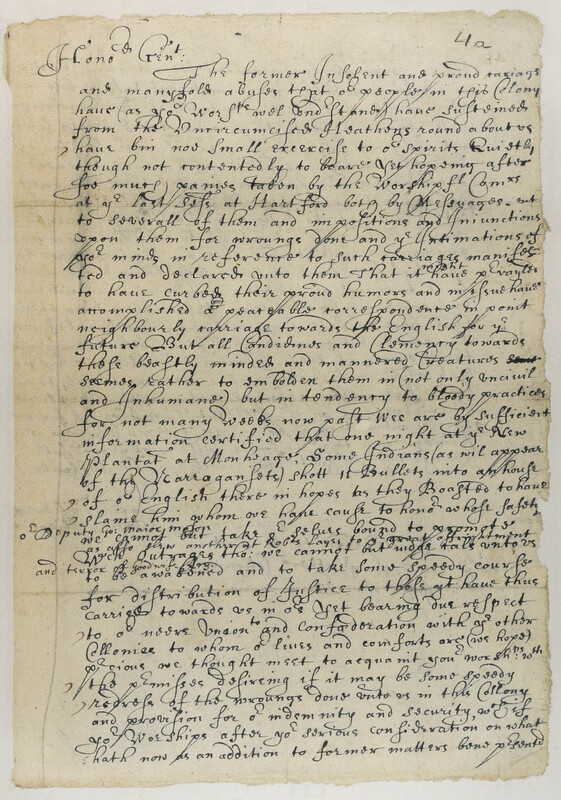 4a
Honord Gent:
The former Insolent and proud cariags
and manyfold abuses that or people in this Colony
have (as yor Worshps wel undrstand) have susteined
from the Uncircumcised Heathens round about us
have bin noe small exercise to or spirits Quietly
though not contentedly to beare yet hopeing after
soe much paines taken by the Worshipfll Comrs
at ye last Sess at Hartford both by Messages sent
to severall of them and impositions and Iniunctions
upon them for wrongs done and ye Intimations of
yor minds in reference to such carriages manifes-
ted and declared unto them that it might have prvayled
to have curbed their proud humors and in issue have
accomplished a peaceable correspondence in point
neighbourly carriage towards the English for ye
future But all Candidnes and Clemency towards
these beastly minded and mannered Creatures
seemes rather to embolden them in (not only uncivil
and Inhumane) but in tendency to bloody practices
for not many weeks now past wee are by sufficient
information certified that one night at ye New
Plantat at Monheage, Some Indians (as wil appear
of the Narragansets) shott 11 Bullets into an house
of or English there in hopes as they Boasted to have
slaine him whom we have cause to honor whose safety
or Deputy Gor: maior Mason
we cannot but take or selves bound to promote
as also unto another at Robt Layes to ye great affrightment
and terror of goodwife Laye
wch Outrages tho: we cannot but judge cals unto us
to be awakened and to take some speedy course
for distribution of Justice to those yt have thus
carried towards us in or yet bearing due respect
to or neere Union and confœderation with ye other
Collonies to whom or lives and comforts are (we hope)
precious we thought meet to acquaint your worshps: with
the prmisses desireing if it may be some speedy
redress of the wrongs done unto us in this Colony
and provision for or indemnity and security, wch if
yor Worships after yor serious consideration on what
hath now as an addition to former matters bene prsented